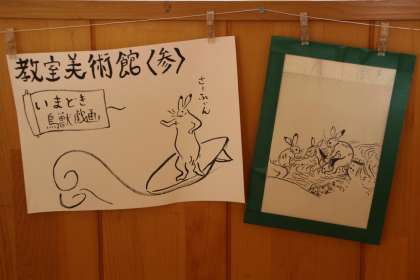 教室美術館〈参〉
いまどき
鳥獣戯画
さーふぃん